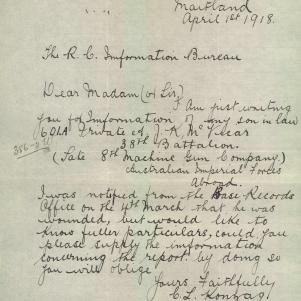 Maitland
April 1st 1918.
The R. C. Information Bureau
Dear Madam (or Sir),
I Am just writing
you for Information of my son in law
Private A. J. K. McVicar
38th Battalion.
(Late 8th Machine Gun Company)
Australian Imperial Forces
Abroad.
I was notified from the Base Records
Office on the 4th March that he was
wounded, but would like to
know fuller particulars, could you
please supply the information
concerning the report by doing so
you will oblige
Yours Faithfully
C. L.